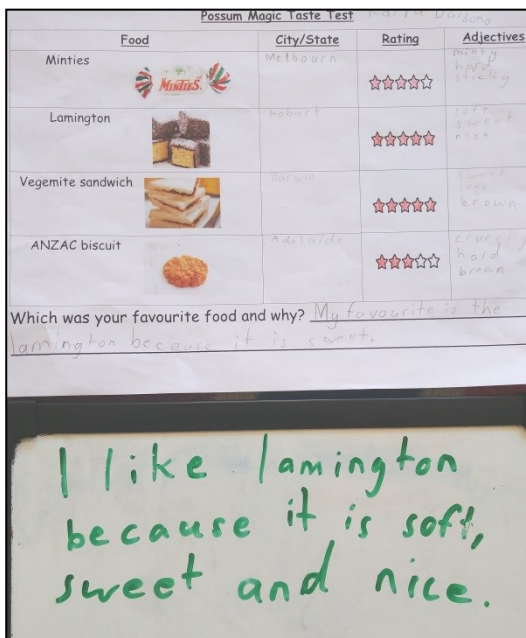 Possum Magic Taste Test
Food City/State Rating Adjectives
Minties MINTIES. Melbourn minty
hard
sticky
Lamington Hobart soft
sweet
nice
Vegemite sandwich Darwin sweet
soft
brown
ANZAC biscuit Adelaide crunchy
hard
brown
Which was your favourite food and why? My favourite is the
lamington because it is sweet.
I like lamington
because it is soft,
sweet and nice.